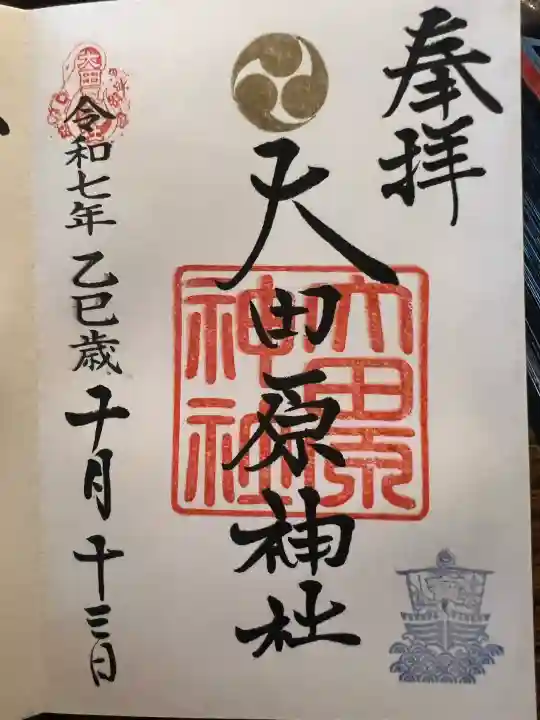 奉拝
大田原神社
大田原神社
令和七年 乙巳歳 十月 十三日